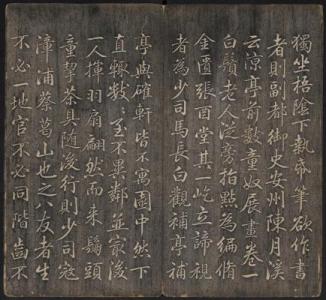 獨坐梧陰下執帋筆欲作書
者則副都御史安州陳月溪
云涼亭前數童奴展畫卷一
白鬚老人從旁指點為緬脩
金匱張酉堂其一屹立諦視
者為少司馬長白觀補亭補
亭與確軒皆不寓園中然下
直輙數至不異鄰並家後
一人揮羽扇翩然而來鬍頭
童挈茶具隨後行則少司寇
漳浦蔡葛山也之八友者生
不必一地官不必同階齒不